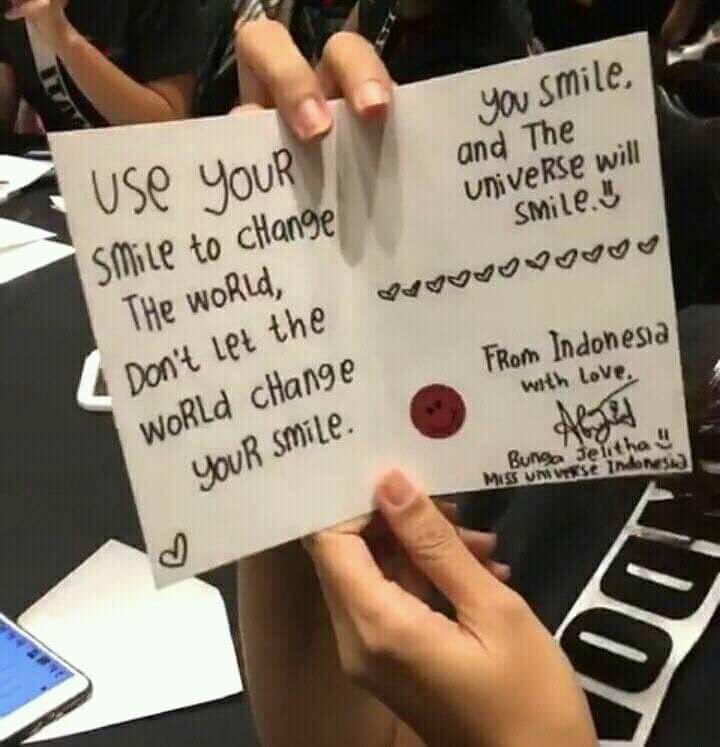 USe YOUR
SMiLE to cHange
THe WORLD,
Don't Let the
WORLD CHange
YOUR SMiLE.
You SMiLE,
and The
UniveRSe will
SMiLE.
FRom Indonesia
with Love.
Bunga Jelitha
MISS UNIVERSE Indonesia